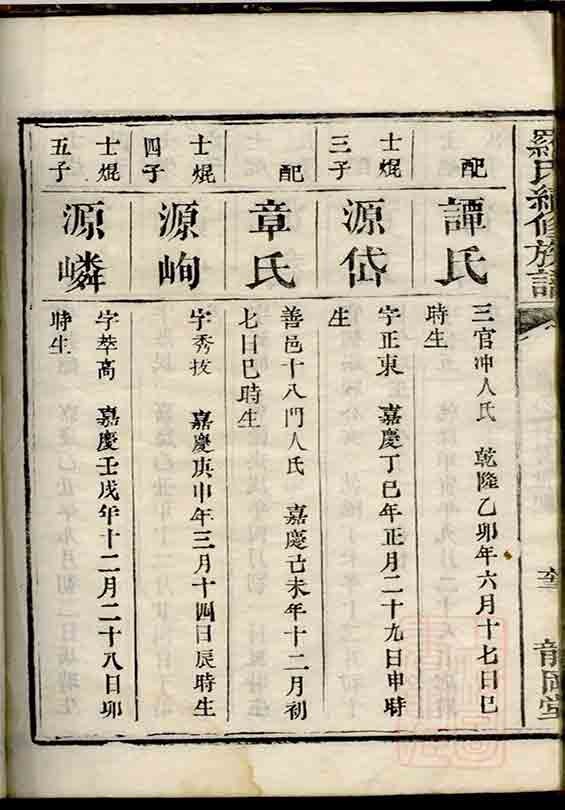 羅氏續修族譜
龍岡堂
配
譚氏
三官冲人氏 乾隆乙卯年六月十七日巳
時生
士焜
三子
源岱
字正東 嘉慶丁巳年正月二十九日申時
生
配
章氏
善邑十八門人氏 嘉慶己未年十二月初
七日巳時生
士焜
四子
源峋
字秀技 嘉慶庚申年三月十四日辰時生
士焜
五子
源嶙
字萃高 嘉慶壬戌年十二月二十八日卯
時生